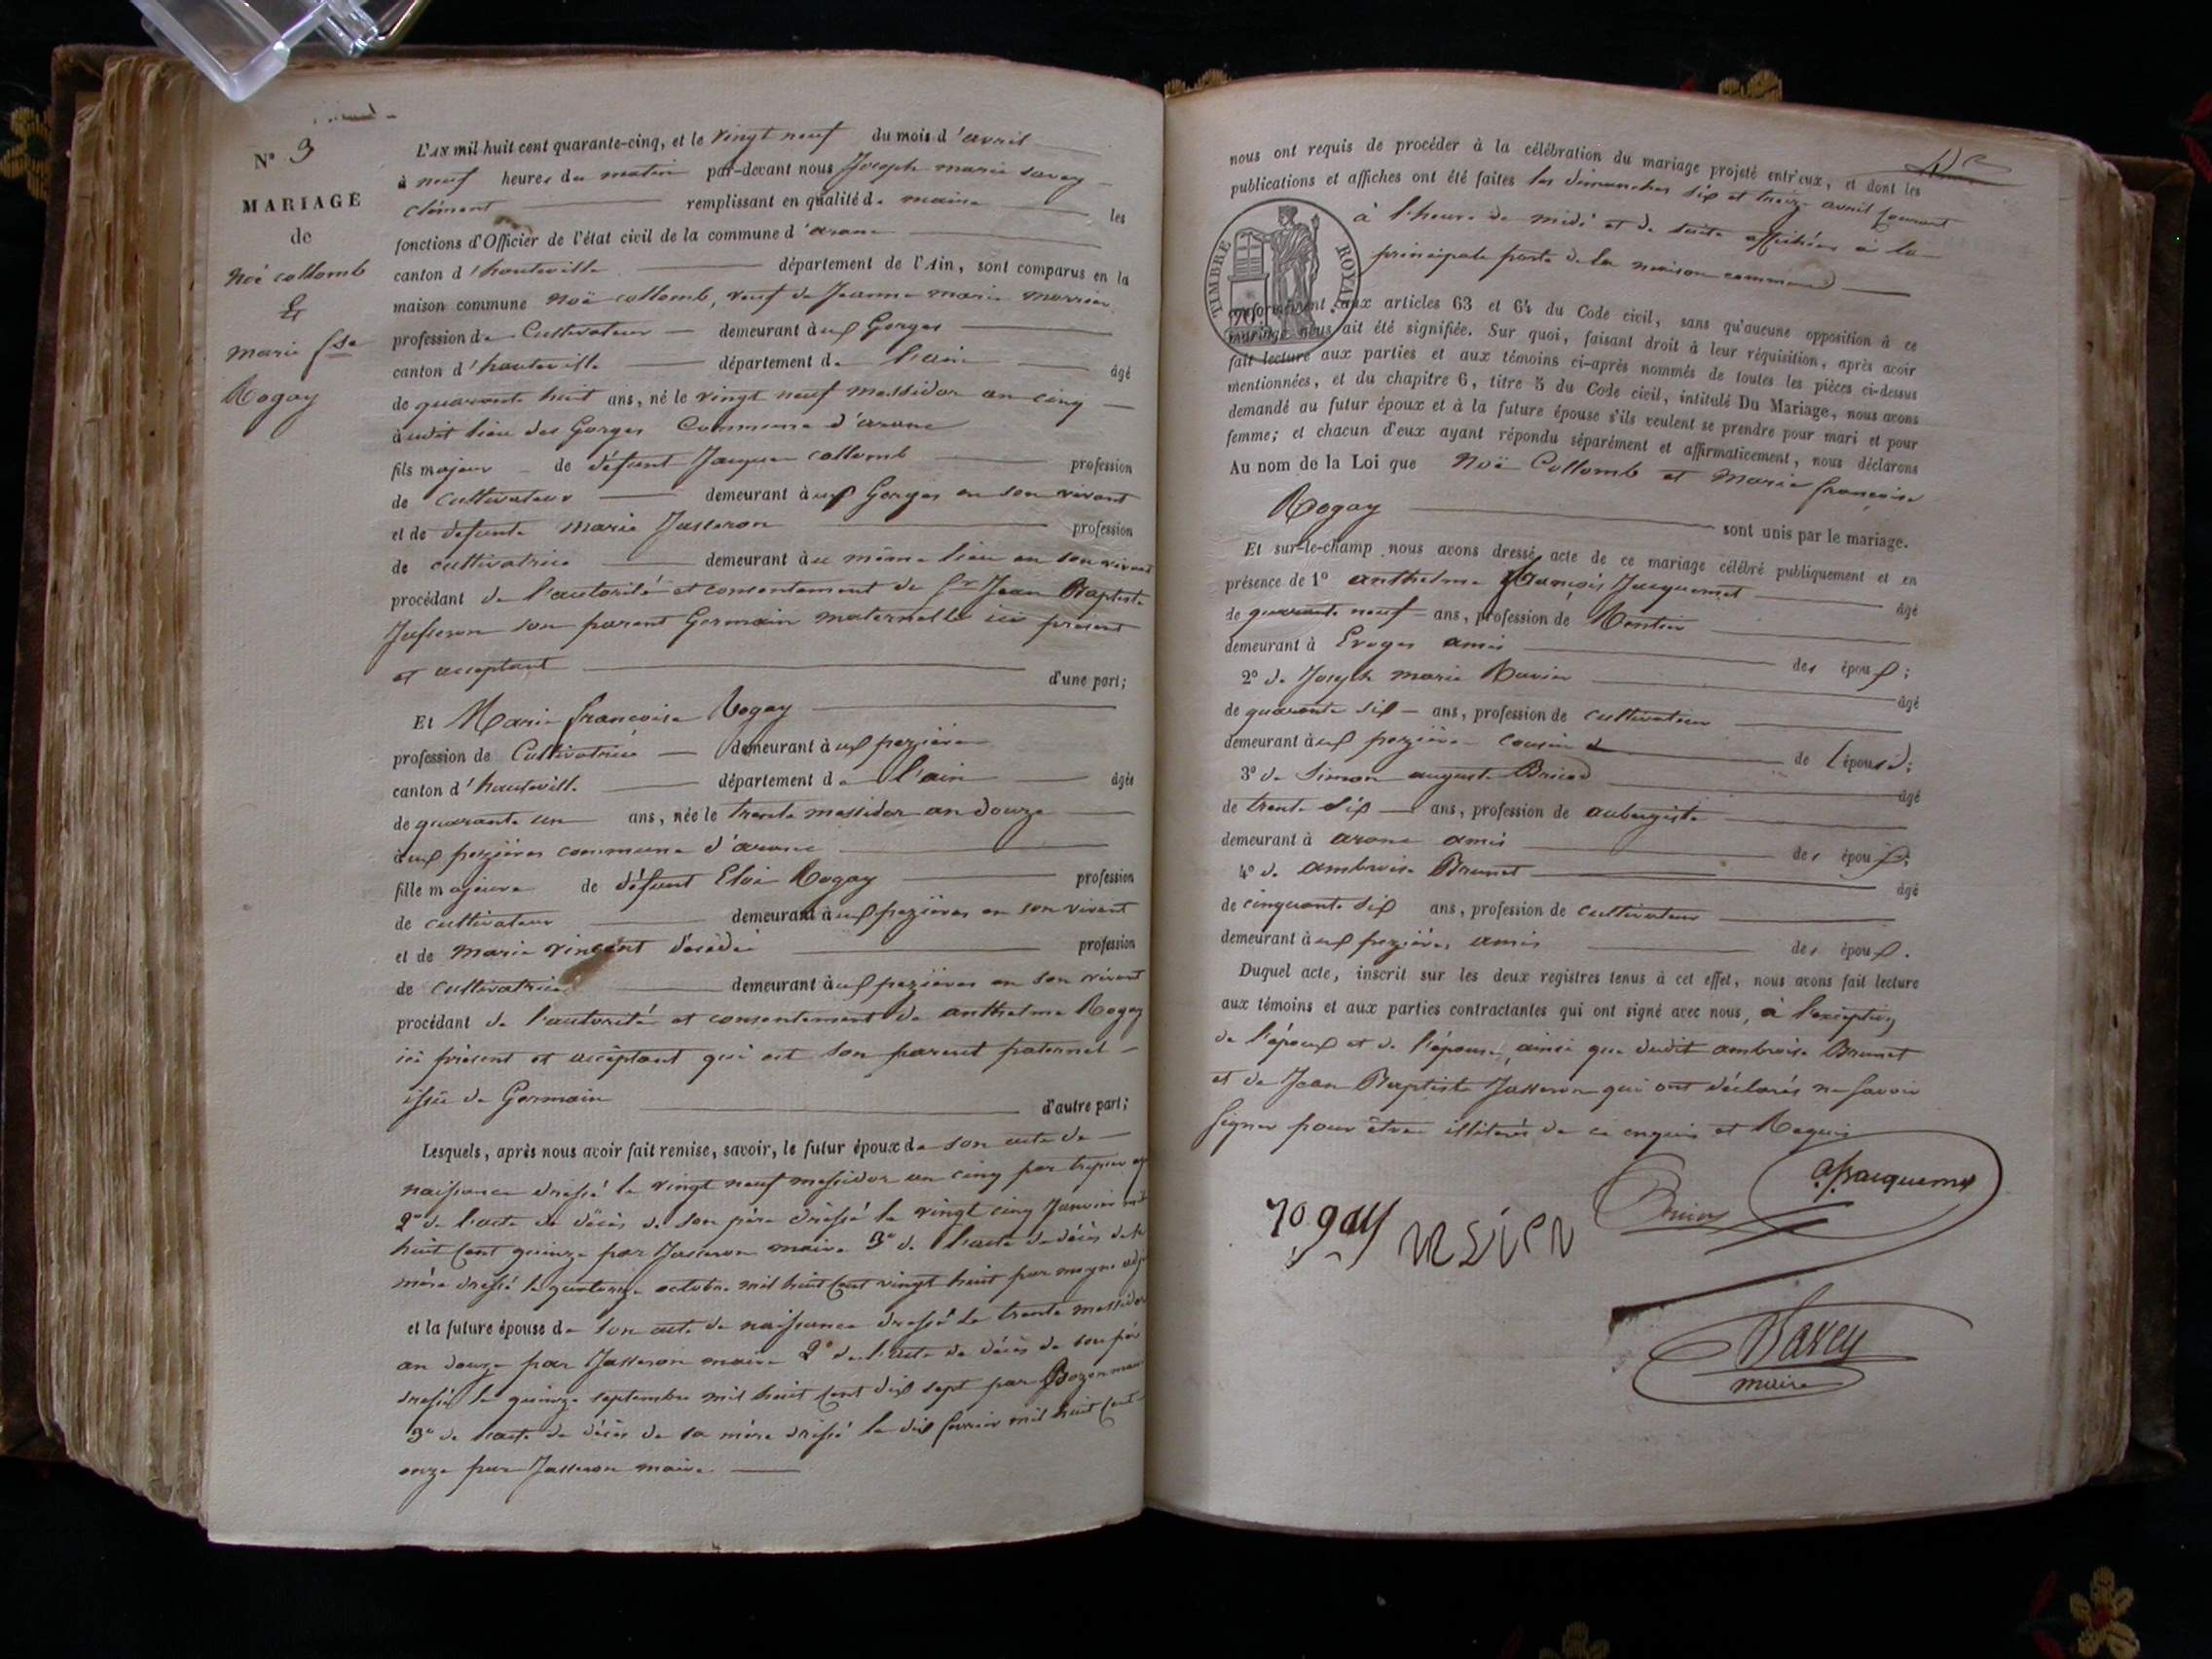 N° 3
MARIAGE
de
Noë collomb
&
marie fse
Rogay
L'AN mil huit cent quarante-cinq, et le vingt neuf du mois d'avril
à neuf heures du matin par-devant nous Joseph marie savey
clément remplissant en qualité de maire les
fonctions d'Officier de l'état civil de la commune d'arane
canton d'hauteville département de l'Ain, sont comparus en la
maison commune Noë collomb, veuf de Jeanne marie
profession de Cultivateur demeurant à ux Gorges
canton d'hauteville département de l'ain âgé
de quarante huit ans, né le vingt neuf messidor an cinq
à udit lieu des Gorges Commune d'arane
fils majeur de défunt Jacques collomb profession
de cultivateur demeurant à ux Gorges en son vivant
et de défunte marie Jasseron profession
de cultivatrice demeurant à u même lieu en son vivant
procédant de l'autorité et consentement de Sr Jean Baptiste
Jasseron son parent Germain maternelle ici présent
et acceptant d'une part;
Et Marie françoise Rogay
profession de Cultivatrice demeurant à ux pezières
canton d'hauteville département de l'ain âgée
de quarante un ans, née le trente messidor an douze
à ux pezières commune d'arane
fille majeure de défunt Eloi Rogay profession
de cultivateur demeurant à ux pezières en son vivant
et de marie vincent décédée profession
de cultivatrice demeurant à ux pezières en son vivant
procédant de l'autorité et consentement de anthelme Rogay
ici présent et acceptant qui est son parent paternel
issu de Germain d'autre part;
Lesquels, après nous avoir fait remise, savoir, le futur époux de son acte de
naissance dressé le vingt neuf messidor an cinq par
2° de l'acte de décès de son père dressé le vingt cinq Janvier mil
huit cent quinze par Jasseron maire 3° de l'acte de décès de sa
mère dressé le quatorze octobre mil huit cent vingt huit par
et la future épouse de son acte de naissance dressé le trente messidor
an douze par Jasseron maire 2° de l'acte de décès de son père
dressé le quinze septembre mil huit cent dix sept par Bozon maire
3° de l'acte de décès de sa mère dressé le dix fevrier mil huit cent
onze par Jasseron maire
nous ont requis de procéder à la célébration du mariage projeté entr'eux, et dont les
publications et affiches ont été faites les dimanches six et treize avril courant
à l'heure de midi et de suite affichées à la
principale porte de la maison commune
TIMBRE ROYAL
conformément aux articles 63 et 64 du Code civil, sans qu'aucune opposition à ce
mariage nous ait été signifiée. Sur quoi, faisant droit à leur réquisition, après avoir
fait lecture aux parties et aux témoins ci-après nommés de toutes les pièces ci-dessus
mentionnées, et du chapitre 6, titre 5 du Code civil, intitulé Du Mariage, nous avons
demandé au futur époux et à la future épouse s'ils veulent se prendre pour mari et pour
femme; et chacun d'eux ayant répondu séparément et affirmativement, nous déclarons
Au nom de la Loi que Noë Collomb et Marie françoise
Rogay sont unis par le mariage.
Et sur-le-champ nous avons dressé acte de ce mariage célébré publiquement et en
présence de 1° anthelme françois Jacquemet âgé
de quarante neuf ans, profession de Rentier
demeurant à Evoges amis des époux;
2° de Joseph marie Ravier âgé
de quarante six ans, profession de cultivateur
demeurant à ux pezières cousin de l'épouse;
3° de Simon auguste Bricod âgé
de trente six ans, profession de aubergiste
demeurant à arane amis des époux;
4° de ambroise Brunet âgé
de cinquante six ans, profession de cultivateur
demeurant à ux pezières amis des époux.
Duquel acte, inscrit sur les deux registres tenus à cet effet, nous avons fait lecture
aux témoins et aux parties contractantes qui ont signé avec nous, à l'exception
de l'époux et de l'épouse, ainsi que dudit ambroise Brunet
et de Jean Baptiste Jasseron qui ont déclarés ne savoir
signer pour être illitérés de ce enquis et Requis
rogay
afjacquemet
Savey
maire